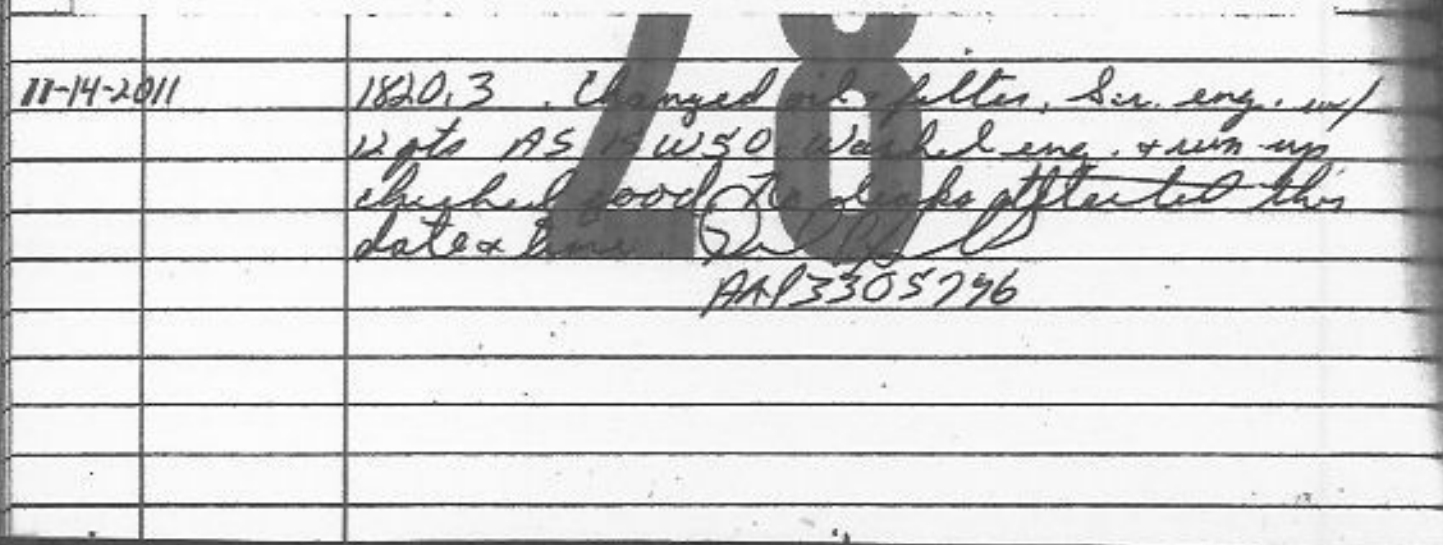 78
11-14-2011 1820.3 . Changed oil & filter. Ser. eng. w/
12 qts AS 15W50. Washed eng. & run-up
checked good. No leaks detected this
date & time.
A&P3305796